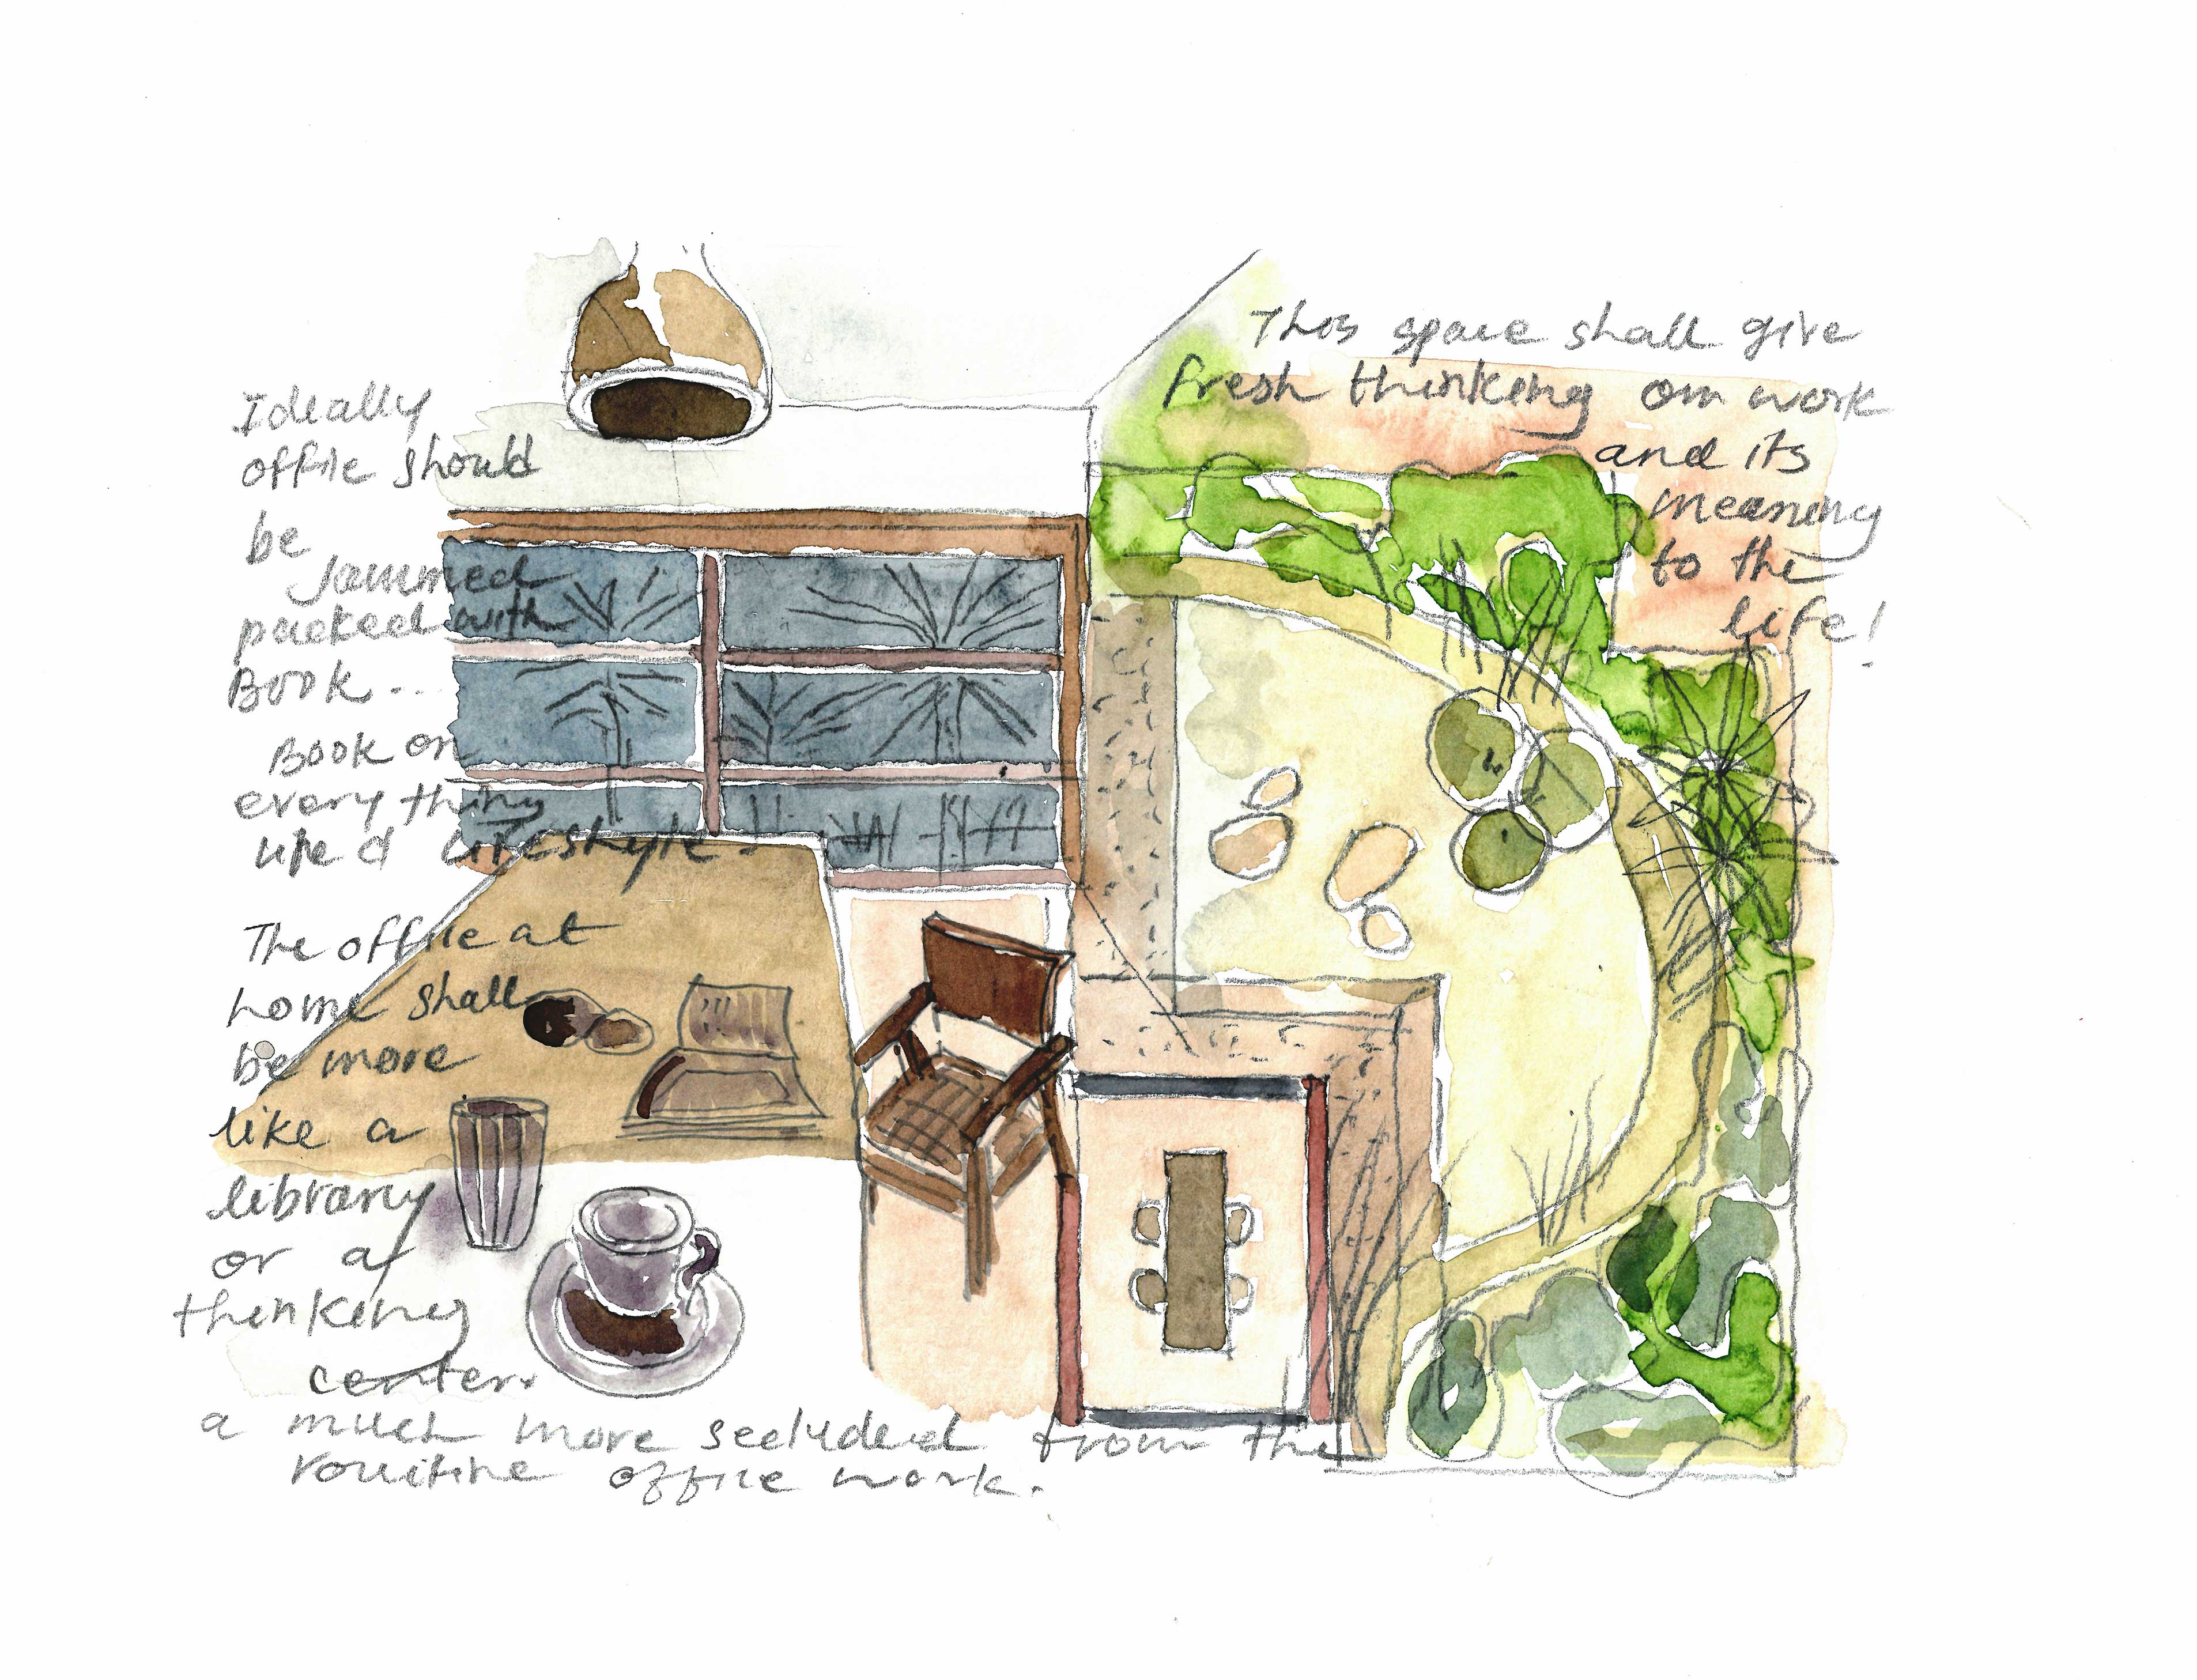 Ideally
office should
be
Jammed
packed with
Book...
Book on
every thing
life & lifestyle.
The office at
home shall
be more
like a
library
or a
thinking
center.
a much more secluded from the
routine office work.
This space shall give
fresh thinking on work
and its
meaning
to the
life!